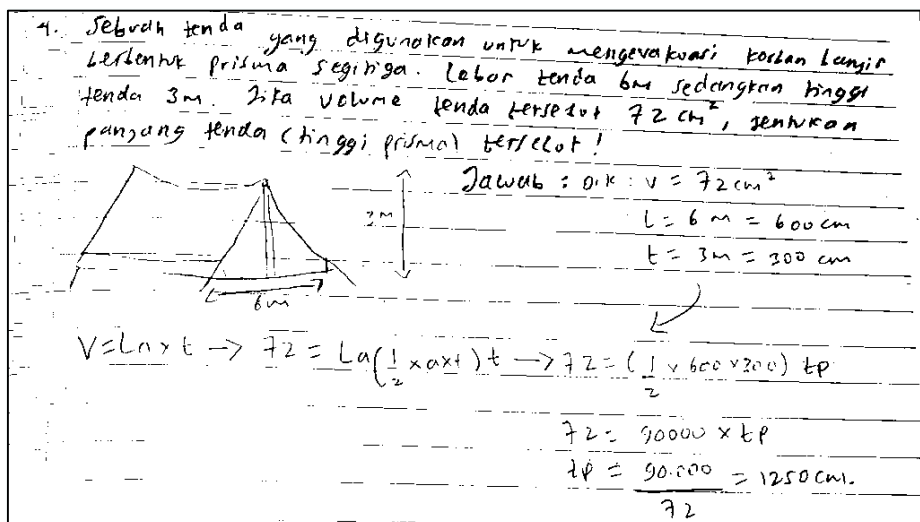 4. Sebuah tenda yang digunakan untuk mengevakuasi korban banjir
berbentuk prisma segitiga. Lebar tenda 6m sedangkan tinggi
tenda 3m. Jika volume tenda tersebut 72 cm², tentukan
panjang tenda (tinggi prisma) tersebut!
Jawab : Dik : V = 72 cm²
l = 6 m = 600 cm
t = 3m = 300 cm
3m
6m
V = La x t → 72 = La(1/2 x a x t) t → 72 = (1/2 x 600 x 300) tp
72 = 90000 x tp
tp = 90.000/72 = 1250 cm.